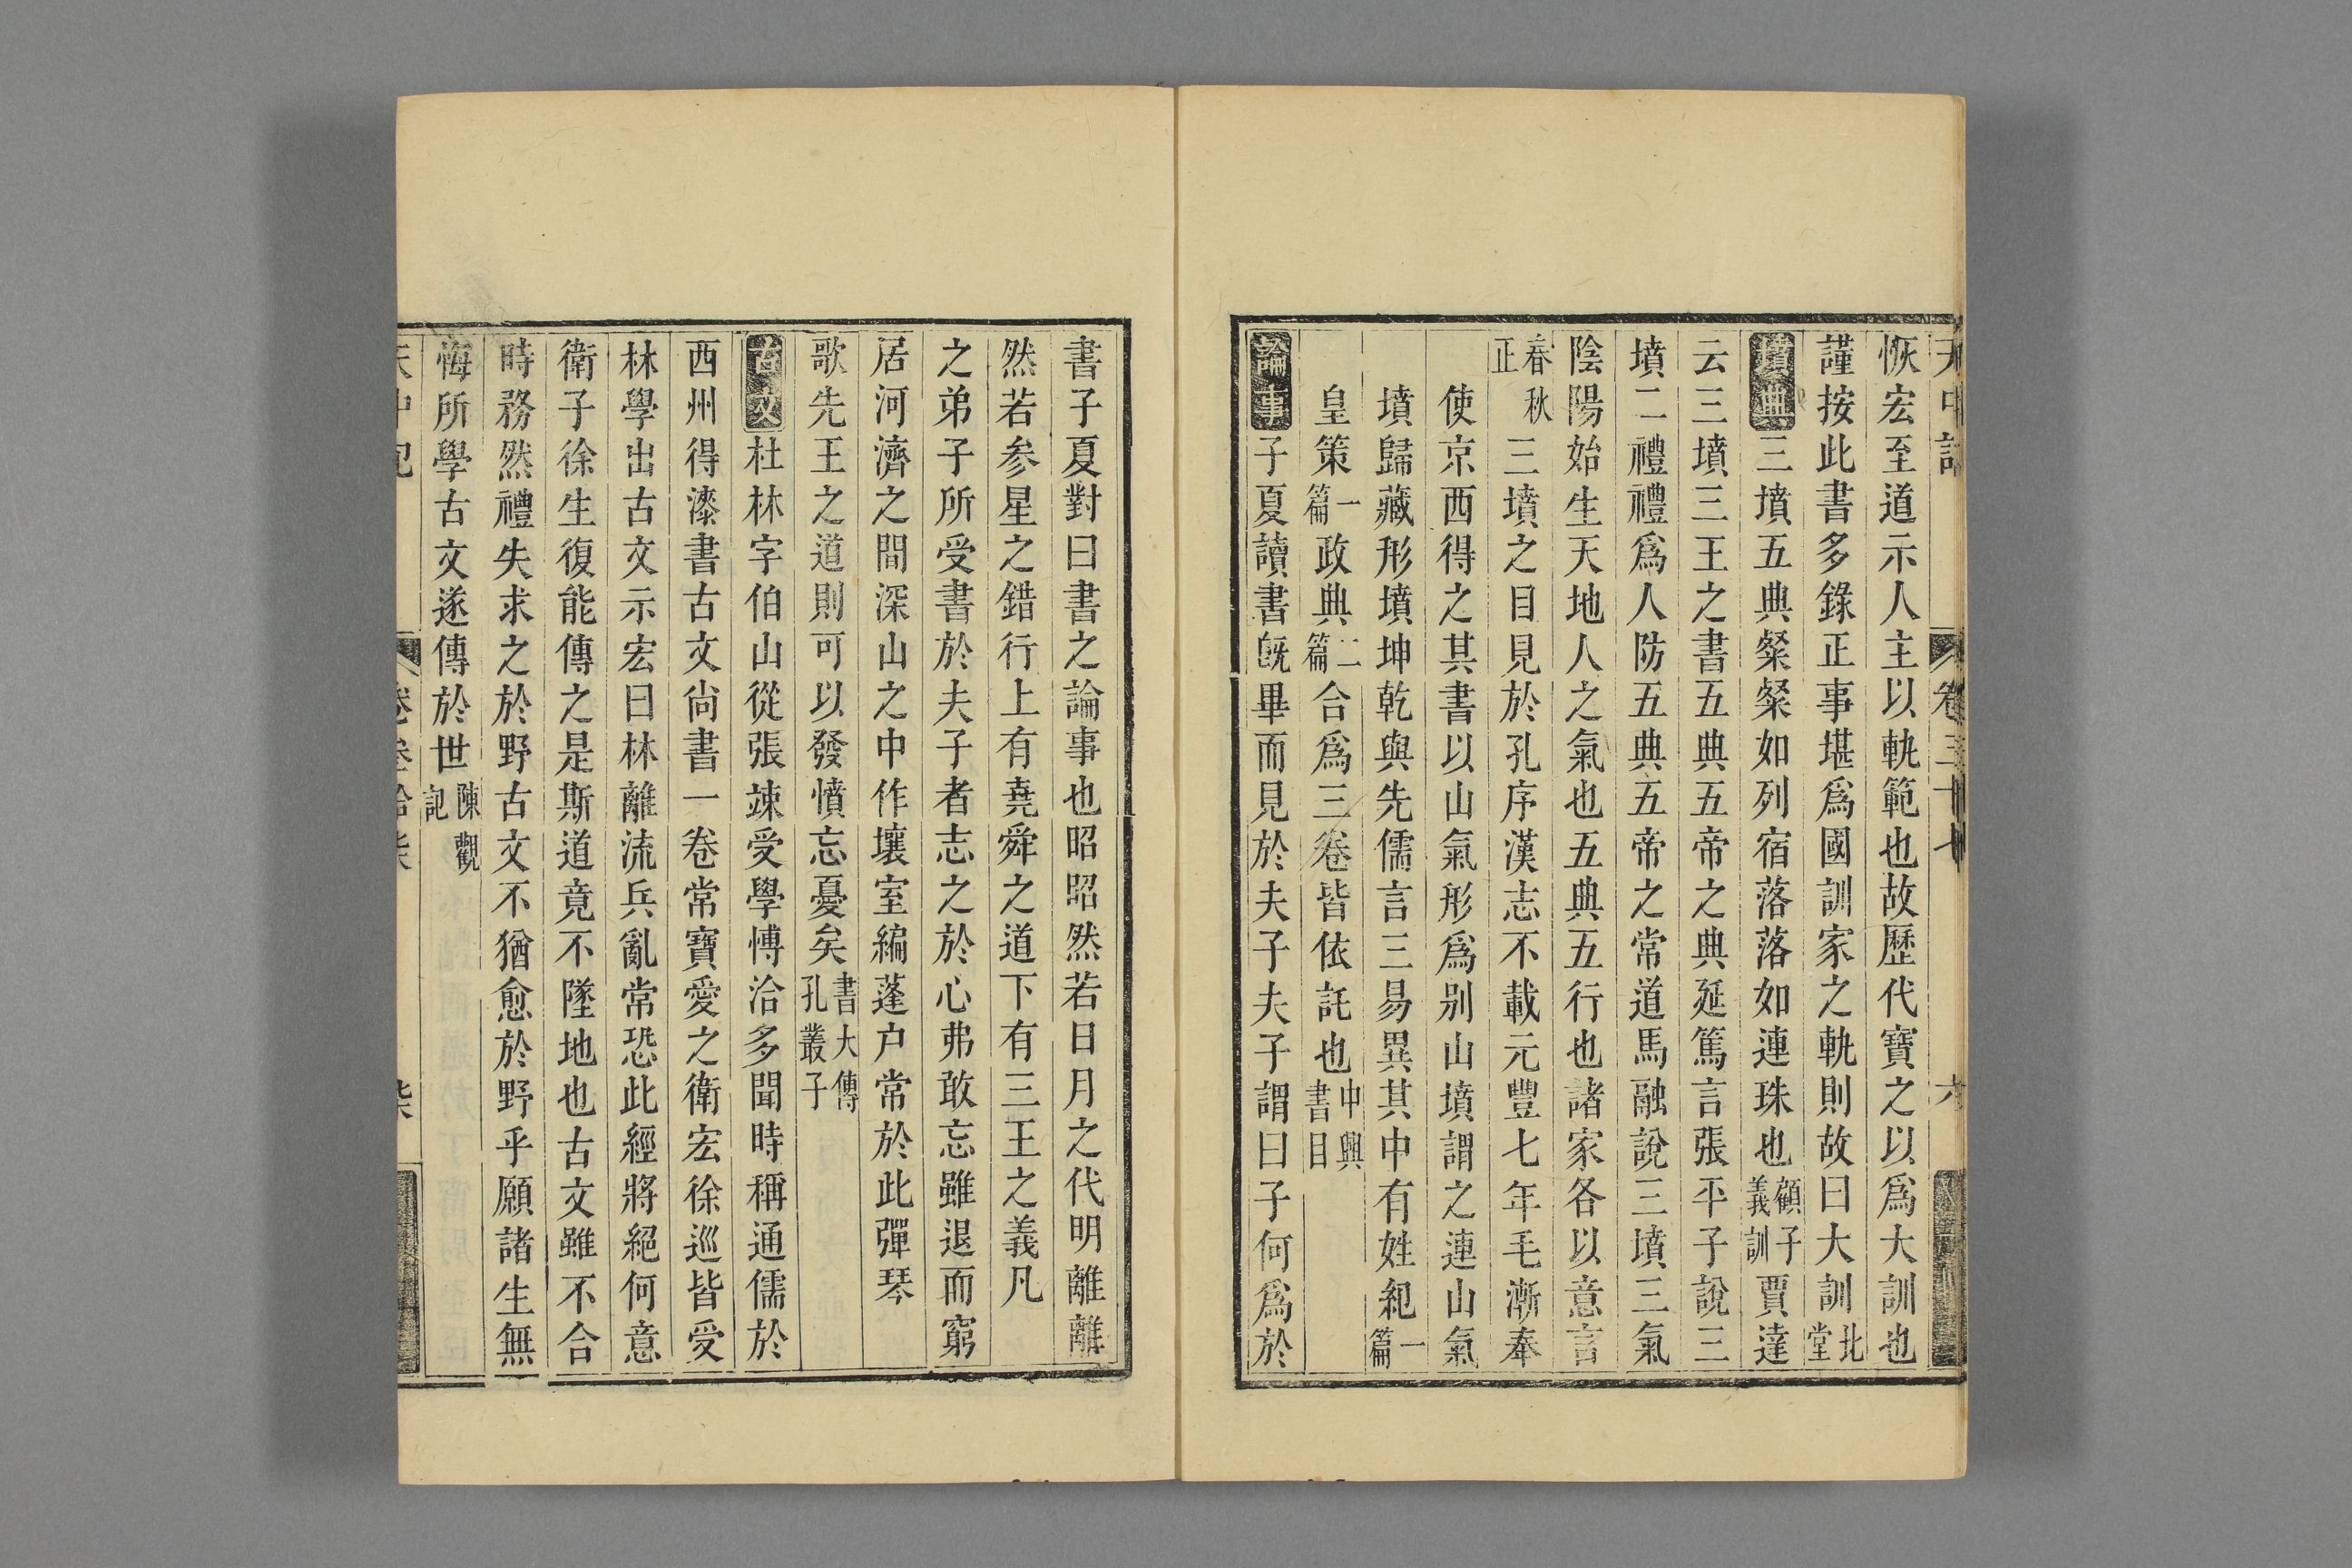 天中記 卷三十七 六
恢宏至道示人主以軌範也故歷代寶之以爲大訓也
謹按此書多錄正事堪爲國訓家之軌則故曰大訓北堂
墳典三墳五典粲粲如列宿落落如連珠也顧子義訓賈逵
云三墳三王之書五典五帝之典延篤言張平子說三
墳二禮禮爲人防五典五帝之常道馬融說三墳三氣
陰陽始生天地人之氣也五典五行也諸家各以意言
春秋正三墳之目見於孔序漢志不載元豐七年毛漸奉
使京西得之其書以山氣形爲别山墳謂之連山氣
墳歸藏形墳坤乾與先儒言三易異其中有姓紀一篇
皇策一篇政典二篇合爲三卷皆依託也中興書目
論事子夏讀書旣畢而見於夫子夫子謂曰子何爲於
書子夏對曰書之論事也昭昭然若日月之代明離離
然若参星之錯行上有堯舜之道下有三王之義凡
之弟子所受書於夫子者志之於心弗敢忘雖退而窮
居河濟之間深山之中作壤室編蓬户常於此彈琴
歌先王之道則可以發憤忘憂矣書大傳孔叢子
古文杜林字伯山從張竦受學博洽多聞時稱通儒於
西州得漆書古文尙書一卷常寶愛之衛宏徐巡皆受
林學出古文示宏曰林離流兵亂常恐此經將絕何意
衛子徐生復能傳之是斯道竟不墜地也古文雖不合
時務然禮失求之於野古文不猶愈於野乎願諸生無
悔所學古文遂傳於世陳觀記